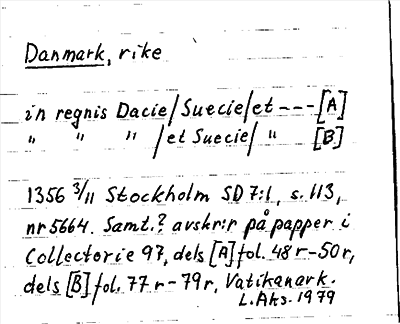 Danmark, rike
in regnis Dacie/Suecie/et --- [A]
" " " /et Suecie/ " [B]
1356 3/11 Stockholm SD 7:1, s. 113,
nr 5664. Samt.? avskr:r på papper i
Collectorie 97, dels [A] fol. 48 r-50 r,
dels [B] fol. 77 r-79 r, Vatikanark.
L.Aks. 1979